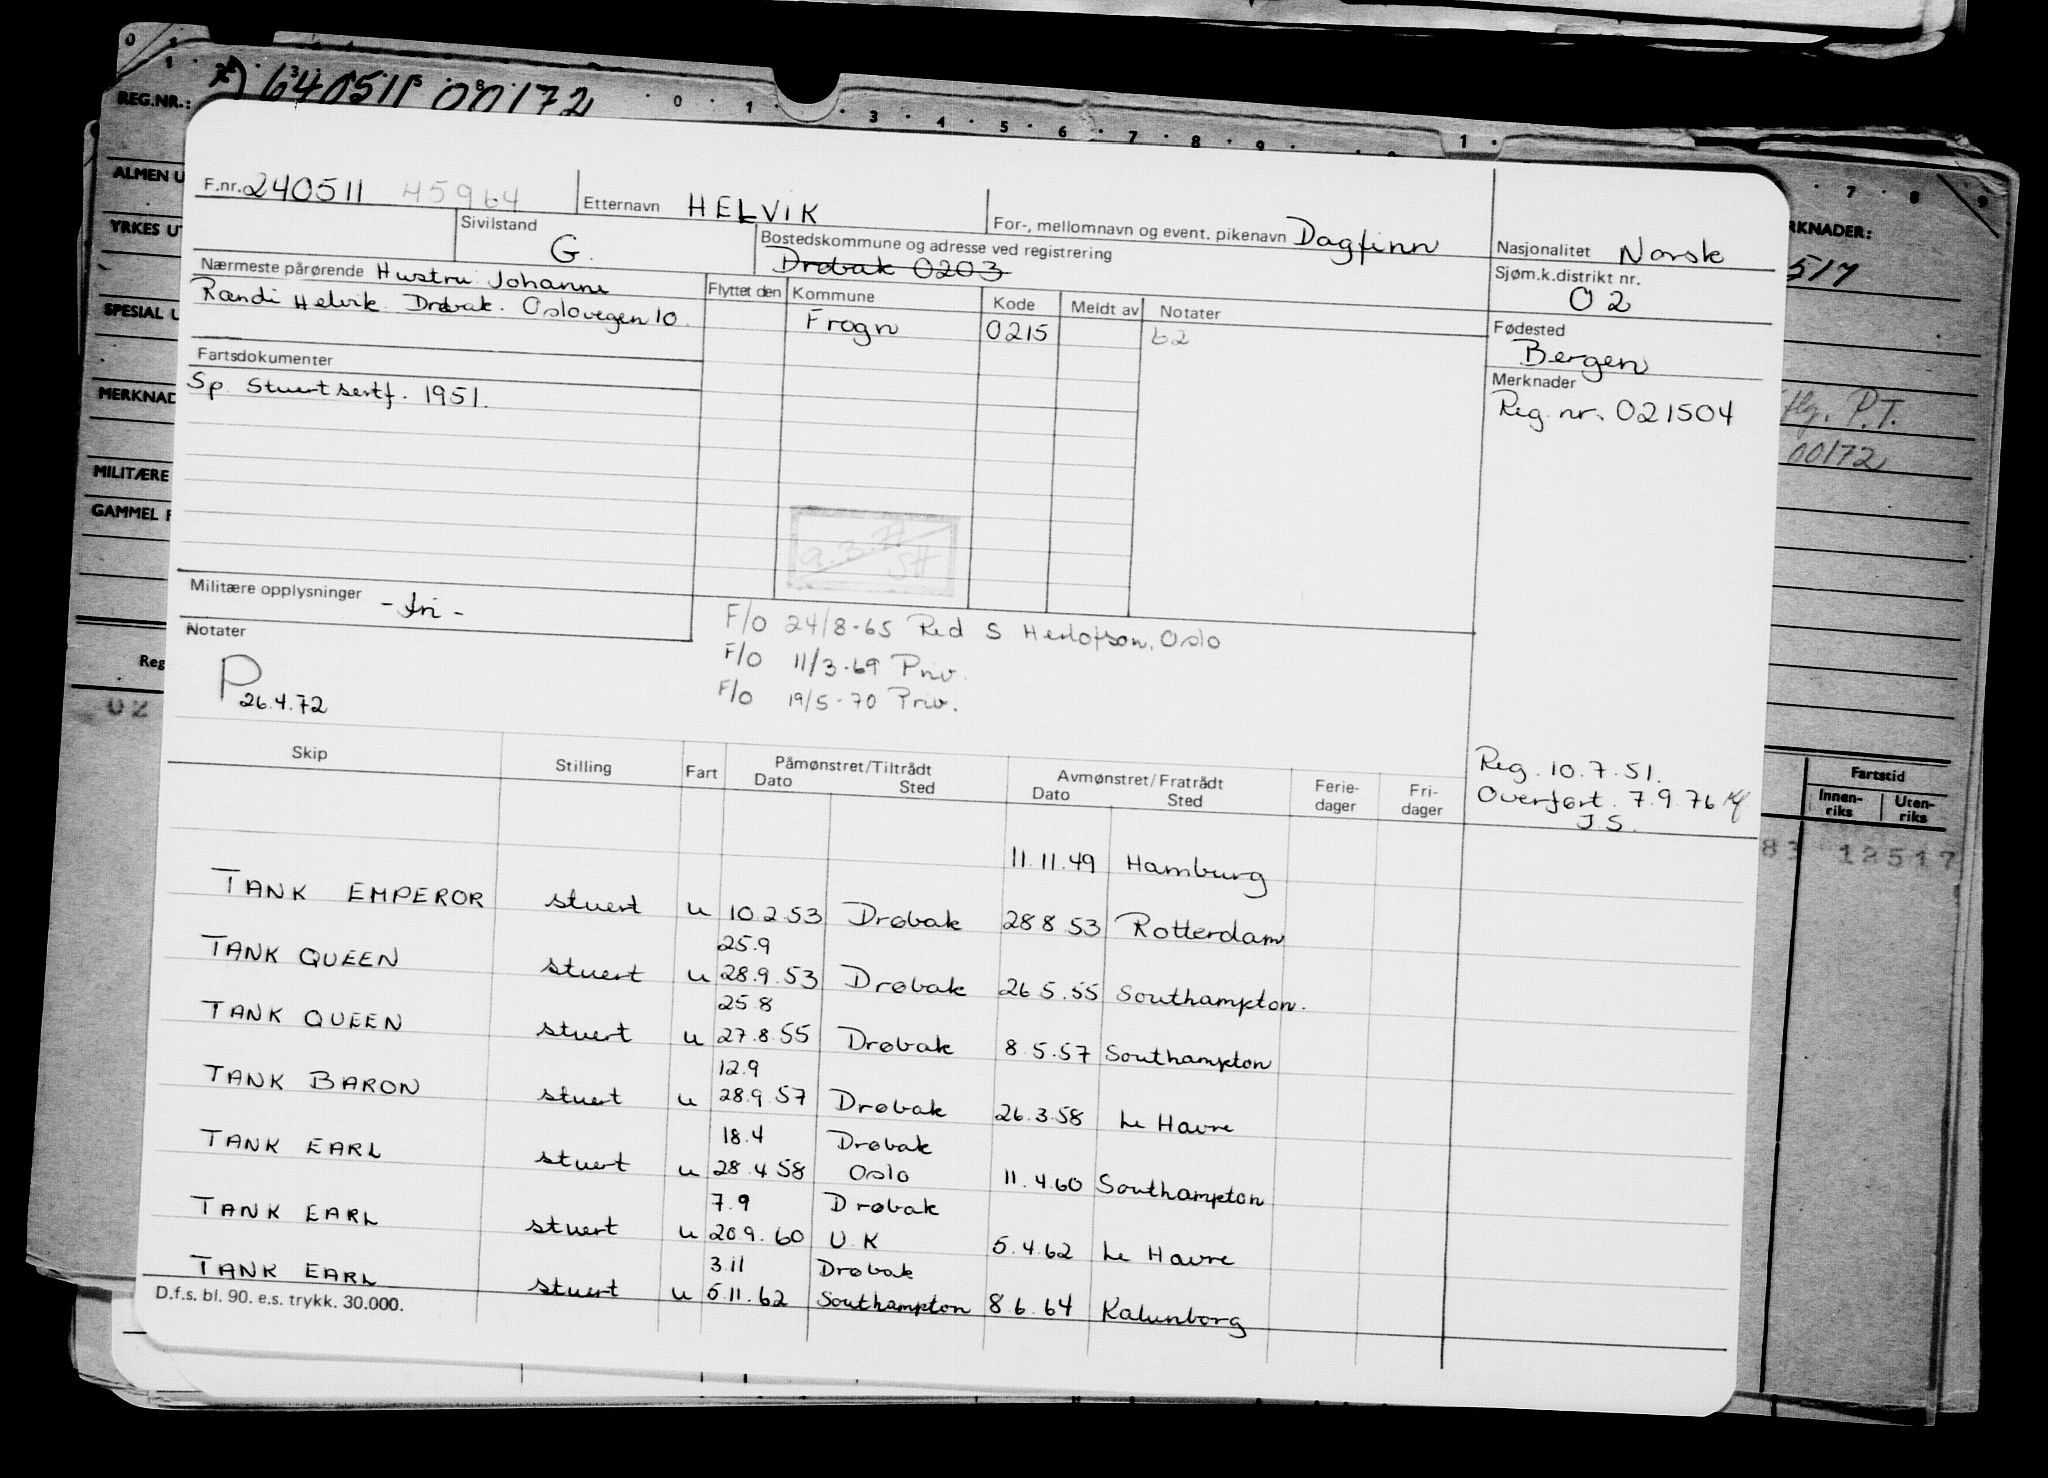 REG.NR.: 640511 00172
ALMEN U
YRKES UT
SPECIAL U
MERKNAD
MILITÆRE
GAMMEL F
Reg
02
F.nr. 240511 45964 Etternavn HELVIK For-, mellomnavn og event. pikenavn Dagfinn Nasjonalitet Norsk
Sivilstand G. Bostedskommune og adresse ved registrering Drøbak 0203 Sjøm.k.distrikt nr. 02
Nærmeste pårørende Hustru Johanne
Randi Helvik. Drøbak. Oslovegen 10.
Flyttet den Kommune Kode Meldt av Notater
Frogn 0215 62
Fødested
Bergen
Fartsdokumenter
Sp. Stuertsertf. 1951.
Merknader
Reg. nr. 021504
Militære opplysninger - fri -
Notater
P 26.4.72
F/O 24/8-65 Red S Herlofson, Oslo
F/O 11/3-69 Priv.
F/O 19/5-70 Priv.
Reg. 10.7.51.
Overført. 7.9.76
J.S.
Skip Stilling Fart Påmønstret/Tiltrådt Dato Sted Avmønstret/Fratrådt Dato Sted Ferie-dager Fri-dager
11.11.49 Hamburg
TANK EMPEROR stuert u 10.2.53 Drøbak 28 8 53 Rotterdam
25.9
TANK QUEEN stuert u 28.9.53 Drøbak 26 5.55 Southampton.
25.8
TANK QUEEN stuert u 27.8.55 Drøbak 8.5.57 Southampton
12.9
TANK BARON stuert u 28.9.57 Drøbak 26.3.58 Le Havre
18.4 Drøbak
TANK EARL stuert u 28.4 58 Oslo 11.4.60 Southampton
7.9 Drøbak
TANK EARL stuert u 20.9.60 U.K 5.4.62 Le Havre
3.11 Drøbak
TANK EARL stuert u 5.11.62 Southampton 8.6.64 Kalunborg
D.f.s. bl. 90. e.s. trykk. 30.000.
RKNADER:
517
P.T.
00172
Fartstid
Innen-riks Uten-riks
83 12517